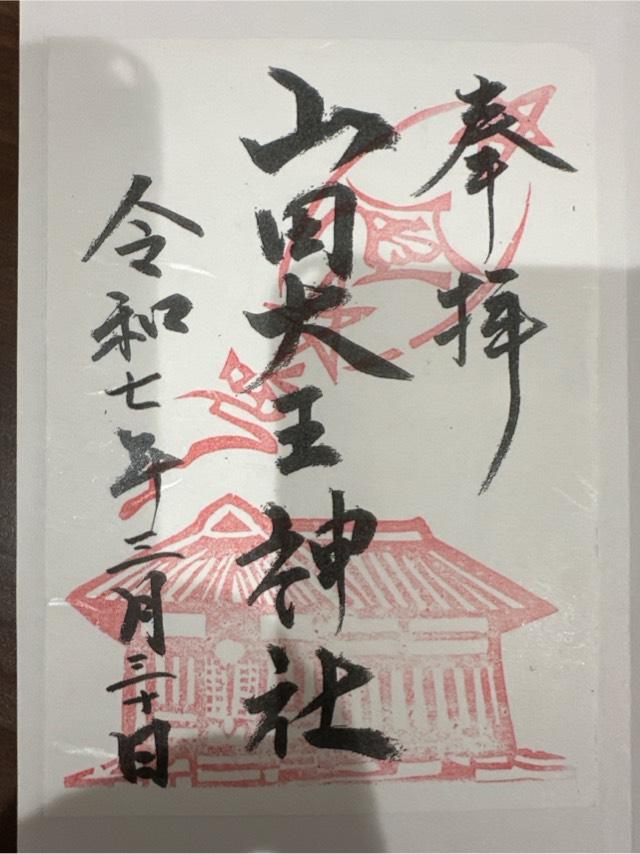 奉拝
山田大王神社
令和七年三月三十日